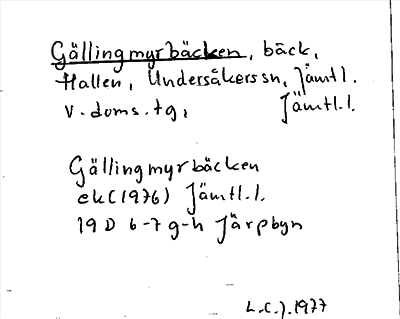 Gällingmyrbäcken, bäck,
Hallen, Undersåkerssn, Jämtl.
v. doms. tg, Jämtl.l.
Gällingmyrbäcken
ek(1976) Jämtl.l.
19 D 6-7 g-h Järpbyn
L.C.J.1977